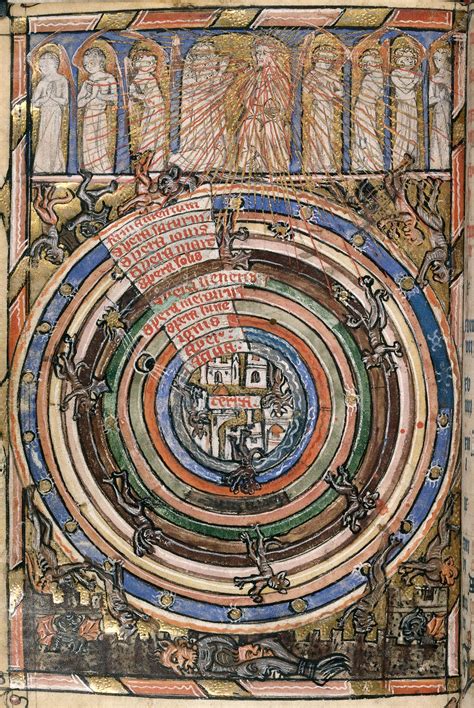 firmamentum
spera saturni
spera iouis
spera martis
spera solis
spera ueneris
spera mercurii
spera lune
ignis
aer
aqua
terra